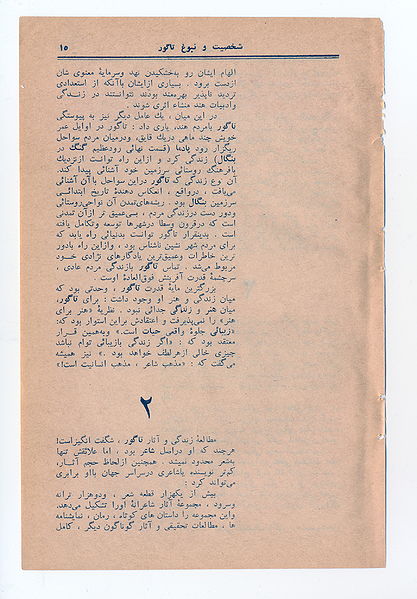 شخصیت و نبوغ تاگور ۱۵
الهام ایشان رو به‌خشکیدن نهد وسرمایهٔ معنوی شان
ازدست برود . بسیاری ازایشان باآنکه از استعدادی
تردید ناپذیر بهره‌مند بودند نتوانستند در زنـدگی
وادبیات هند منشاء اثری شوند .
در این میان ، یك عامل دیگر نیز به پیوستگی
تاگور بامردم هند، یاری داد : تاگور در اوایل عمر
خویش چند ماهی دریك قایق، ودرمیان مردم سواحل
ریگزار رود پادما (قسمت نهائی رودعظیم گنگ در
بنگال) زندگی کرد و ازاین راه توانست ازنزدیك
بافرهنگ روستائی سرزمین خود آشنائی پیدا کند.
آن نوع زندگی که تاگور دراین سواحل باآن آشنائی
می‌یافت ، درواقع ، انعکاس دهندهٔ تاریخ ابتدائـی
سرزمین بنگال بود . ریشه‌های‌تمدن آن نواحی‌روستائی
ودور دست درزندگی مردم ، بسی‌عمیق تر ازآن تمدنی
است که درقرون وسطا درشهرها توسعه وتکامل یافته
است . بدینقرار تاگور توانست بدنیائی راه یابد که
برای مردم شهر نشین ناشناس بود ، وازاین راه بادور
ترین خاطرات وعمیق‌ترین یادگارهای نژادی خـود
مربوط می‌شد . تماس تاگور بازندگی مردم عادی ،
سرچشمهٔ قدرت آفرینش فوق‌العادهٔ اوست .
بزرگترین مایهٔ قدرت تاگور ، وحدتی بود که
میان زندگی و هنر او وجود داشت : برای تاگور،
میان هنر و زندگی جدائی نبود . نظریهٔ «هنر برای
هنر» را نمی‌پذیرفت و اعتقادش براین استوار بود که:
«زیبائی جلوهٔ واقعی حیات است.» وبه‌همین قـرار
معتقد بود که : «اگر زندگی بازیبائی توام نباشد
چیزی خالی ازهرلطف خواهد بود .» نیز همیشه
می‌گفت که : «مذهب شاعر ، مذهب انسانیت است!»
۲
مطالعهٔ زندگی و آثار تاگور ، شگفت انگیزاست!
هرچند که او دراصل شاعر بود ، اما علائقش تنها
به‌شعر محدود نمیشد . همچنین ازلحاظ حجم آثـار،
کم‌تر نویسنده یاشاعری درسراسر جهان بااو برابری
می‌تواند کرد :
بیش از یکهزار قطعه شعر ، ودوهزار ترانه
وسرود ، مجموعهٔ آثار شاعرانهٔ اورا تشکیل می‌دهد.
واین مجموعه را داستان های کوتاه ، رمان ، نمایشنامه
ها ، مطالعات تحقیقی و آثار گوناگون دیگر ، کامل